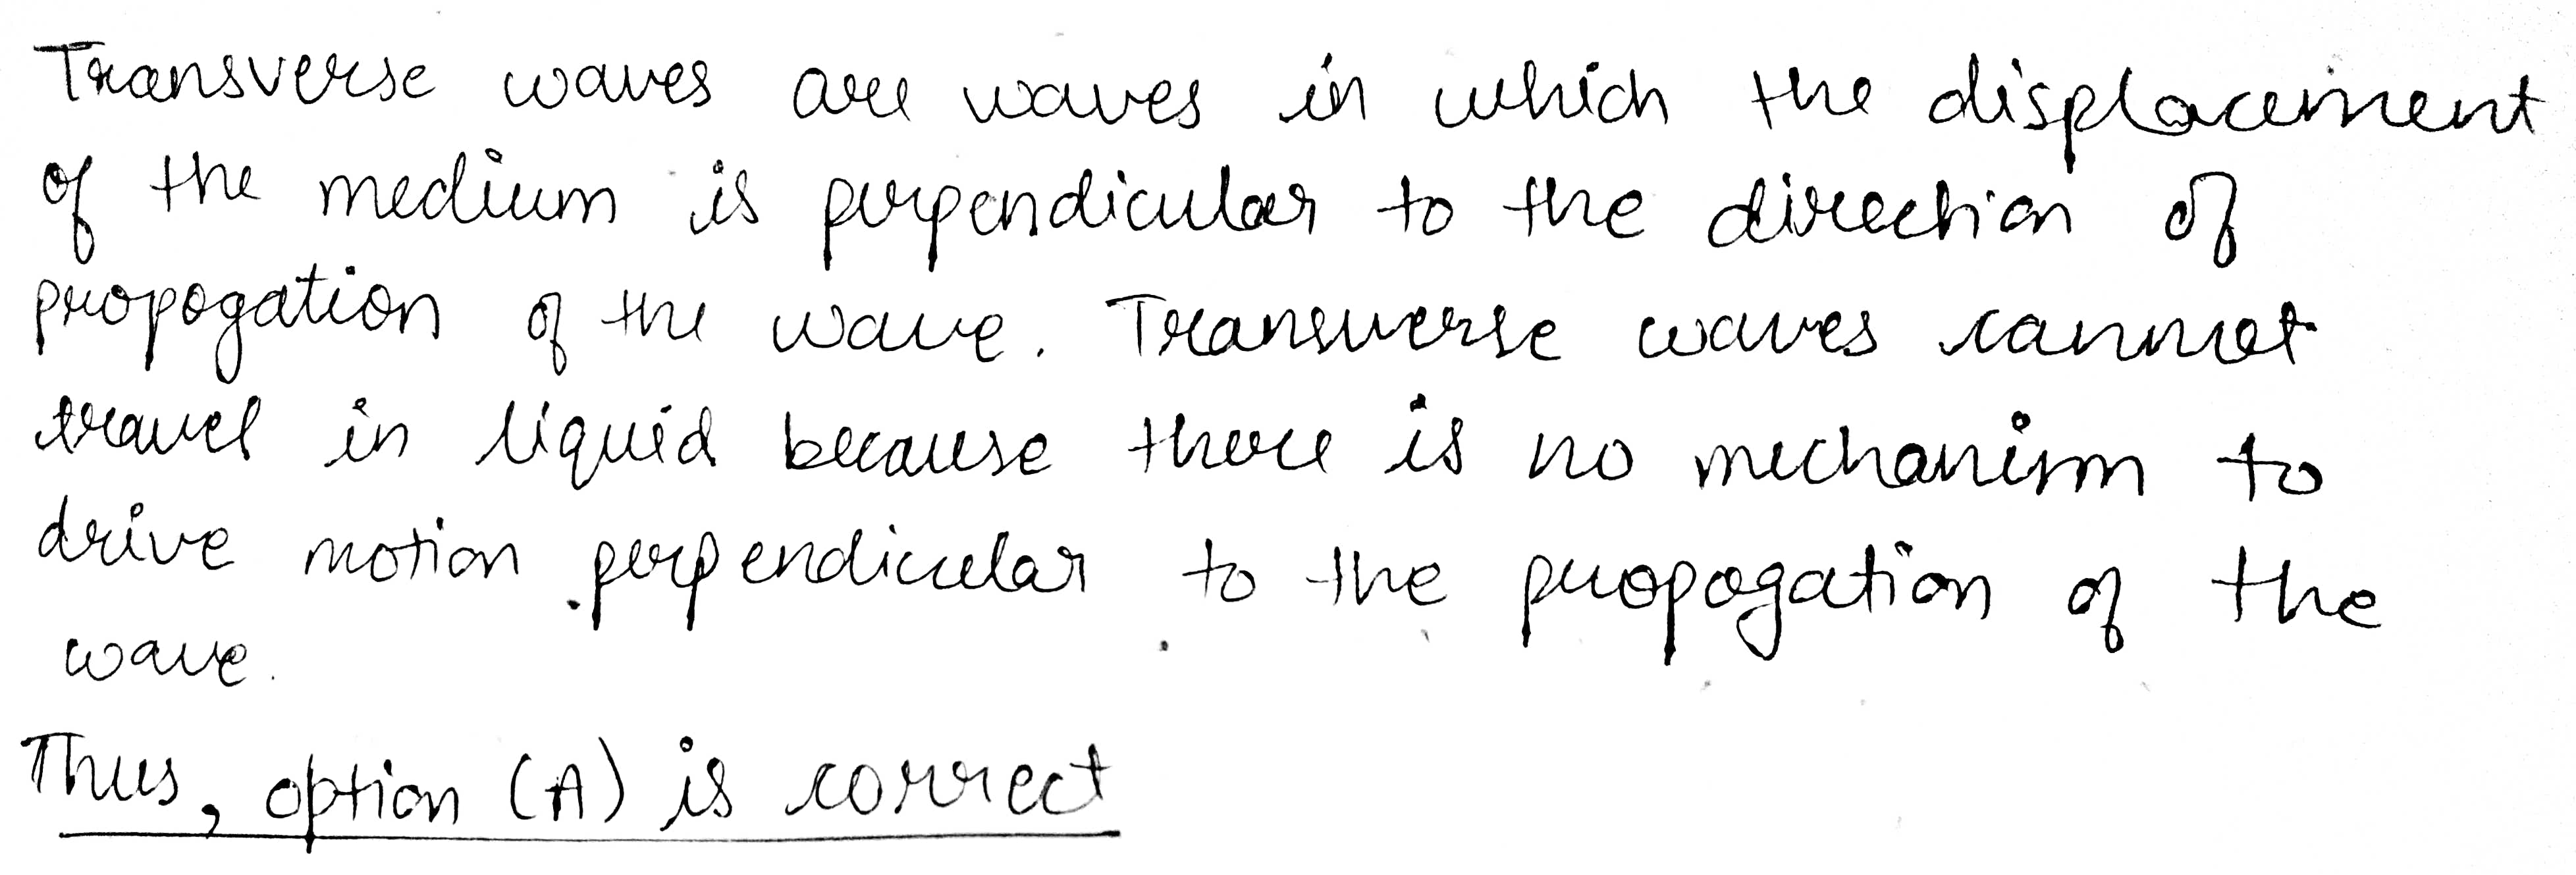 Transverse waves are waves in which the displacement
of the medium is perpendicular to the direction of
propogation of the wave. Transverse waves cannot
travel in liquid because there is no mechanism to
drive motion perpendicular to the propogation of the
wave.
Thus, option (A) is correct